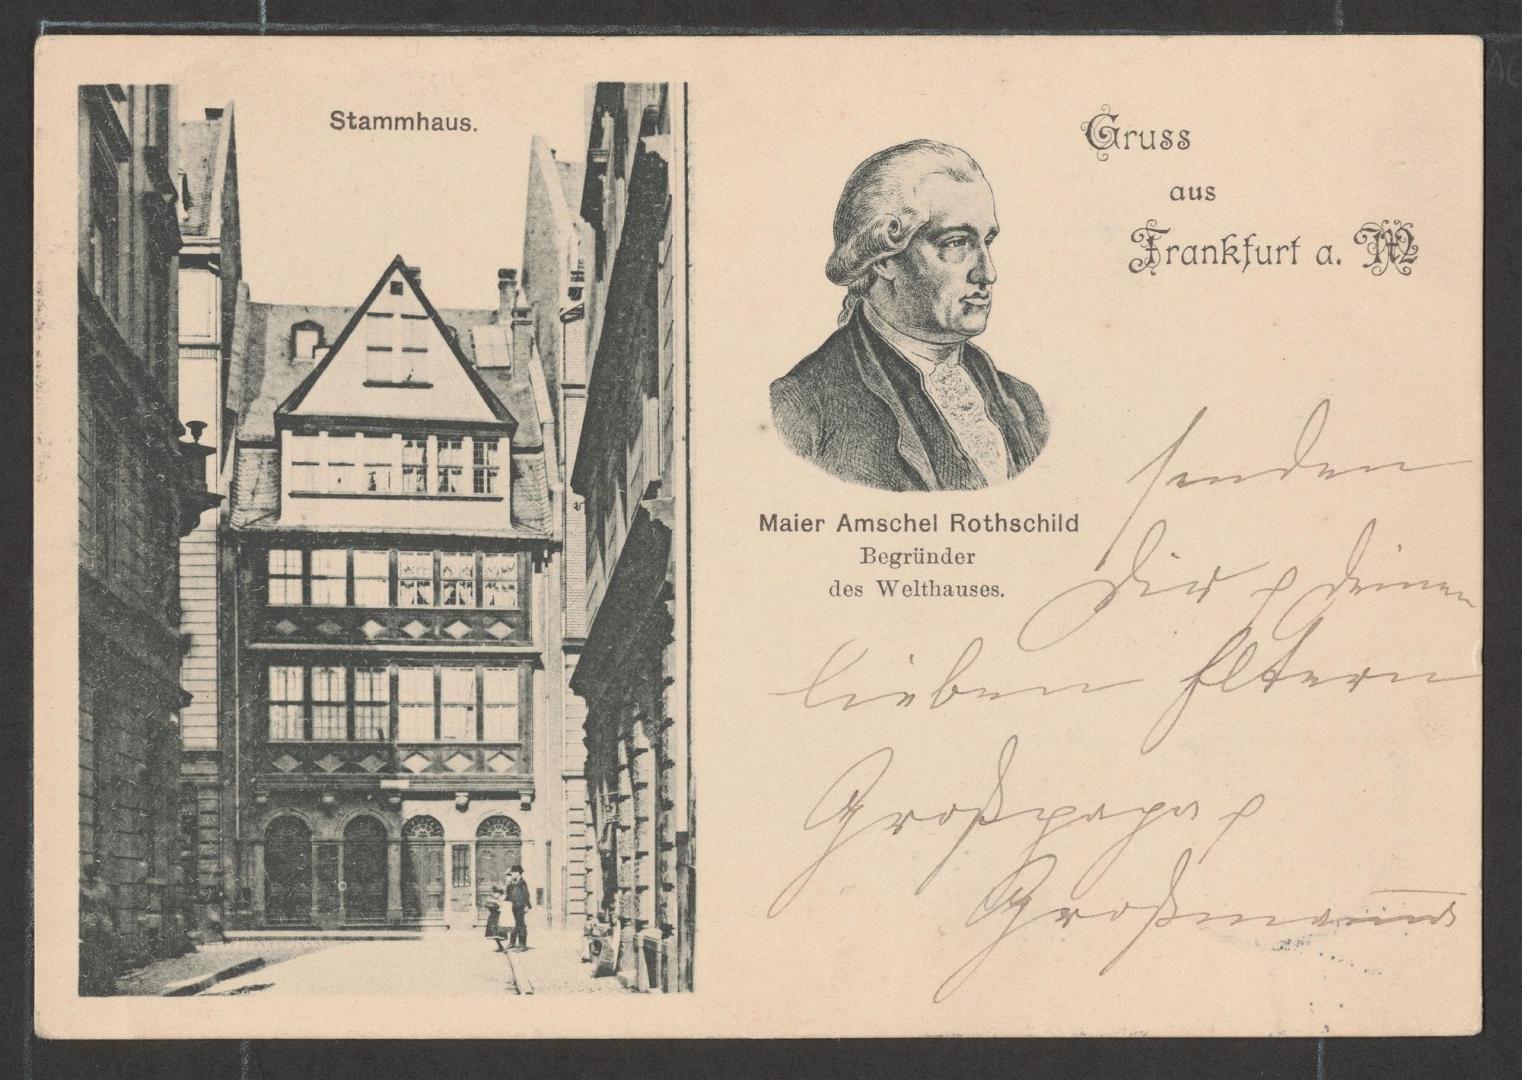 Stammhaus.
Gruss
aus
Frankfurt a. M
Maier Amschel Rothschild
Begründer
des Welthauses.
senden
Dir & deinen
lieben Eltern
Großpapa &
Großmama